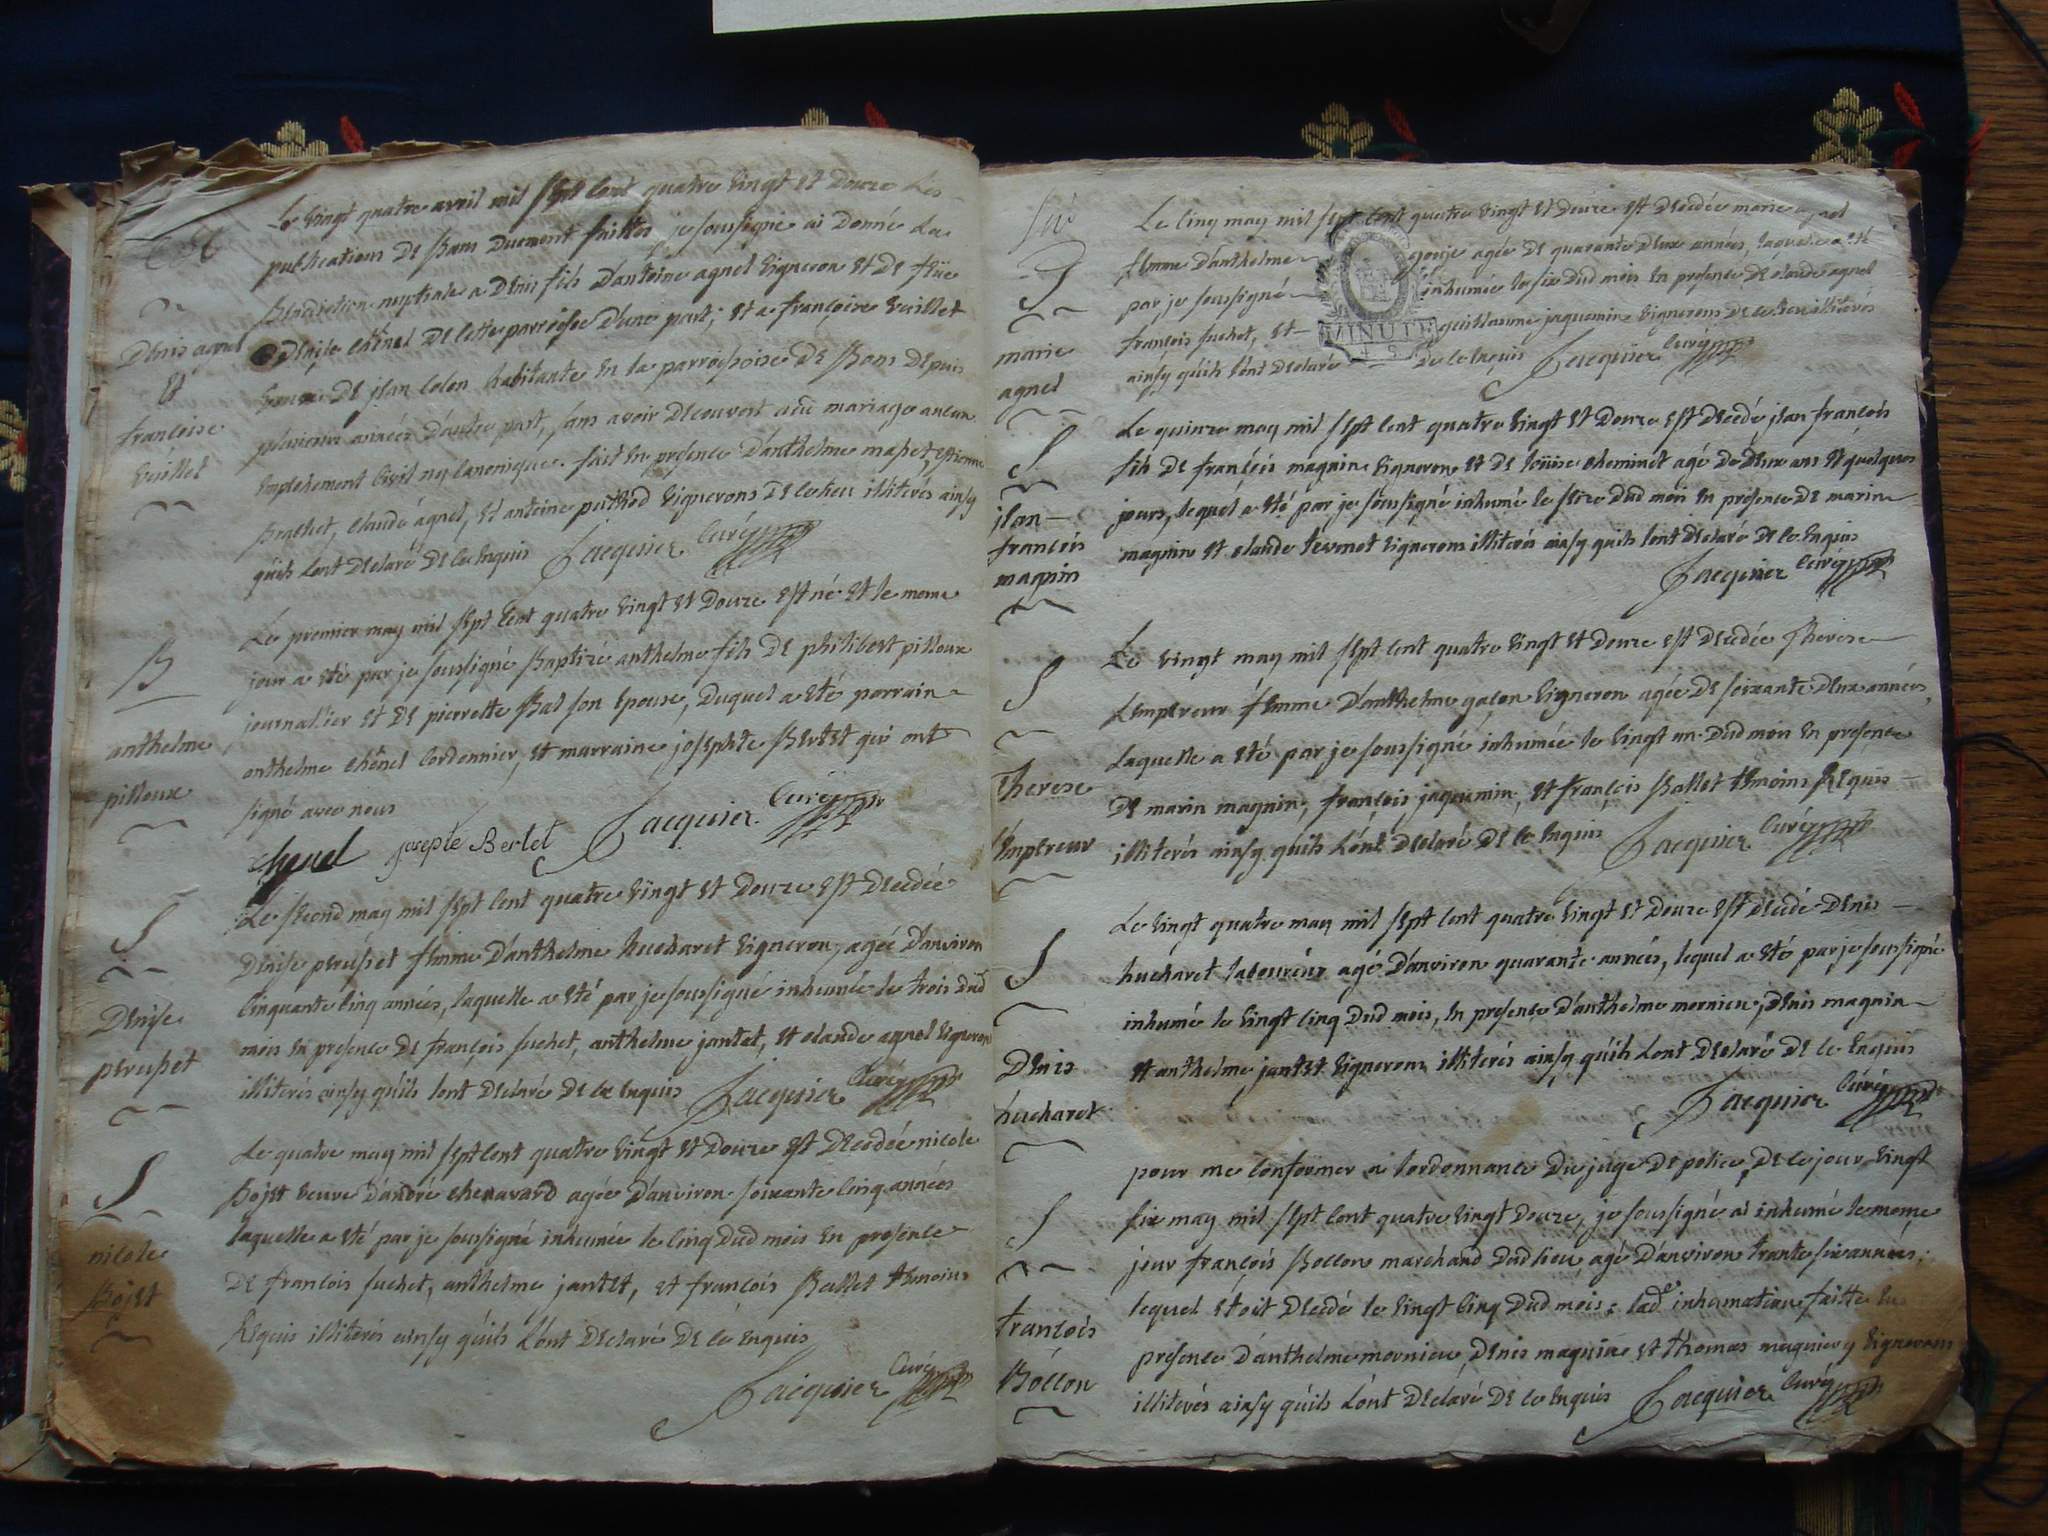 Le vingt quatre avril mil sept cent quatre vingt et douze les
publications de bans duement faittes je soussigné ai donné la
bénédiction nuptiale a denis fils d'antoine agnel vigneron et de füe
denise chênel de cette parroisse d'une part; et a françoise vuillet
veuve de jean colon habitante en la parroissoise de Bons depuis
plusieurs années d'autre part, sans avoir découvert audit mariage aucun
empêchement civil ny canonique. fait en presence d'anthelme masset, etienne
brachet, claude agnel, et antoine puthod vignerons de ce lieu illiterés ainsy
qu'ils l'ont déclaré de ce enquis Jacquier Curé
M
denis agnel
et
françoise
vuillet
Le premier may mil sept cent quatre vingt et douze est né et le meme
jour a eté par je soussigné Baptizé anthelme fils de philibert pilloux
journallier et de pierrette Bal son epouse, duquel a eté parrain
anthelme chênel Cordonnier, et marraine josephte Bertet qui ont
signé avec nous
chenel josepte Bertet Jacquier Curé
B
anthelme
pilloux
Le second may mil sept cent quatre vingt et douze est décédée
denise perusset femme d'anthelme hucharet vigneron, agée d'anviron
cinquante cinq années, laquelle a eté par je soussigné inhumée le trois dud
mois en presence de françois suchet, anthelme jantet, et claude agnel vignerons
illiterés ainsy qu'ils l'ont declaré de ce enquis Jacquier Curé
S
denise
perusset
Le quatre may mil sept cent quatre vingt et douze est decedée nicole
Bojet veuve d'andré chenavard agée d'anviron soixante cinq années
laquelle a eté par je soussigné inhumée le cinq dud mois en presence
de francois suchet, anthelme jantet, et francois Ballet témoins
Requis illiterés ainsy qu'ils l'ont declaré de ce enquis
Jacquier Curé
S
nicole
Bojet
Six
Le cinq may mil sept cent quatre vingt et douze est decedée marie agnel
femme d'anthelme goyje agée de quarante deux années, laquelle a eté
par je soussigné inhumée le six dud mois en presence de claude agnel
françois suchet, et guillaume jaquemin vignerons de ce lieu illiterés
ainsy qu'ils l'ont declaré de ce enquis Jacquier Curé
MINUTE
4 S
S
marie
agnel
Le quinze may mil sept cent quatre vingt et douze est decedé jean francois
fils de francois magnin vigneron et de loüise cheminet agé de deux ans et quelques
jours, lequel a eté par je soussigné inhumé le seize dud mois en presence de marin
magnin et claude tevenet vignerons illiterés ainsy qu'ils l'ont declaré de ce enquis
Jacquier Curé
S
jean
francois
magnin
Le vingt may mil sept cent quatre vingt et douze est decedée Therese
Lempereur femme d'anthelme gaçon vigneron agée de soixante deux années,
laquelle a eté par je soussigné inhumée le vingt un dud mois en presence
de marin magnin, françois jaquemin, et françois Ballet témoins Requis
illiterés ainsy qu'ils l'ont declaré de ce enquis Jacquier Curé
S
Therese
Lempereur
Le vingt quatre may mil sept cent quatre vingt et douze est décédé denis
hucharet laboureur agé d'anviron quarante années, lequel a eté par je soussigné
inhumé le vingt cinq dud mois, en presence d'anthelme mornieu, denis magnin
et anthelme jantet vignerons illiterés ainsy qu'ils l'ont declaré de ce enquis
Jacquier Curé
S
denis
hucharet
pour me conformer a l'ordonnance du juge de police, de ce jour vingt
six may mil sept cent quatre vingt douze, je soussigné ai inhumé le meme
jour françois Bollon marchand dud lieu, agé d'anviron trante six années;
lequel etoit decedé le vingt cinq dud mois: lade inhumation faitte en
presence d'anthelme mornieu, denis magnin et thomas vignerons
illiterés ainsy qu'ils l'ont declaré de ce enquis Jacquier Curé
S
francois
Bollon